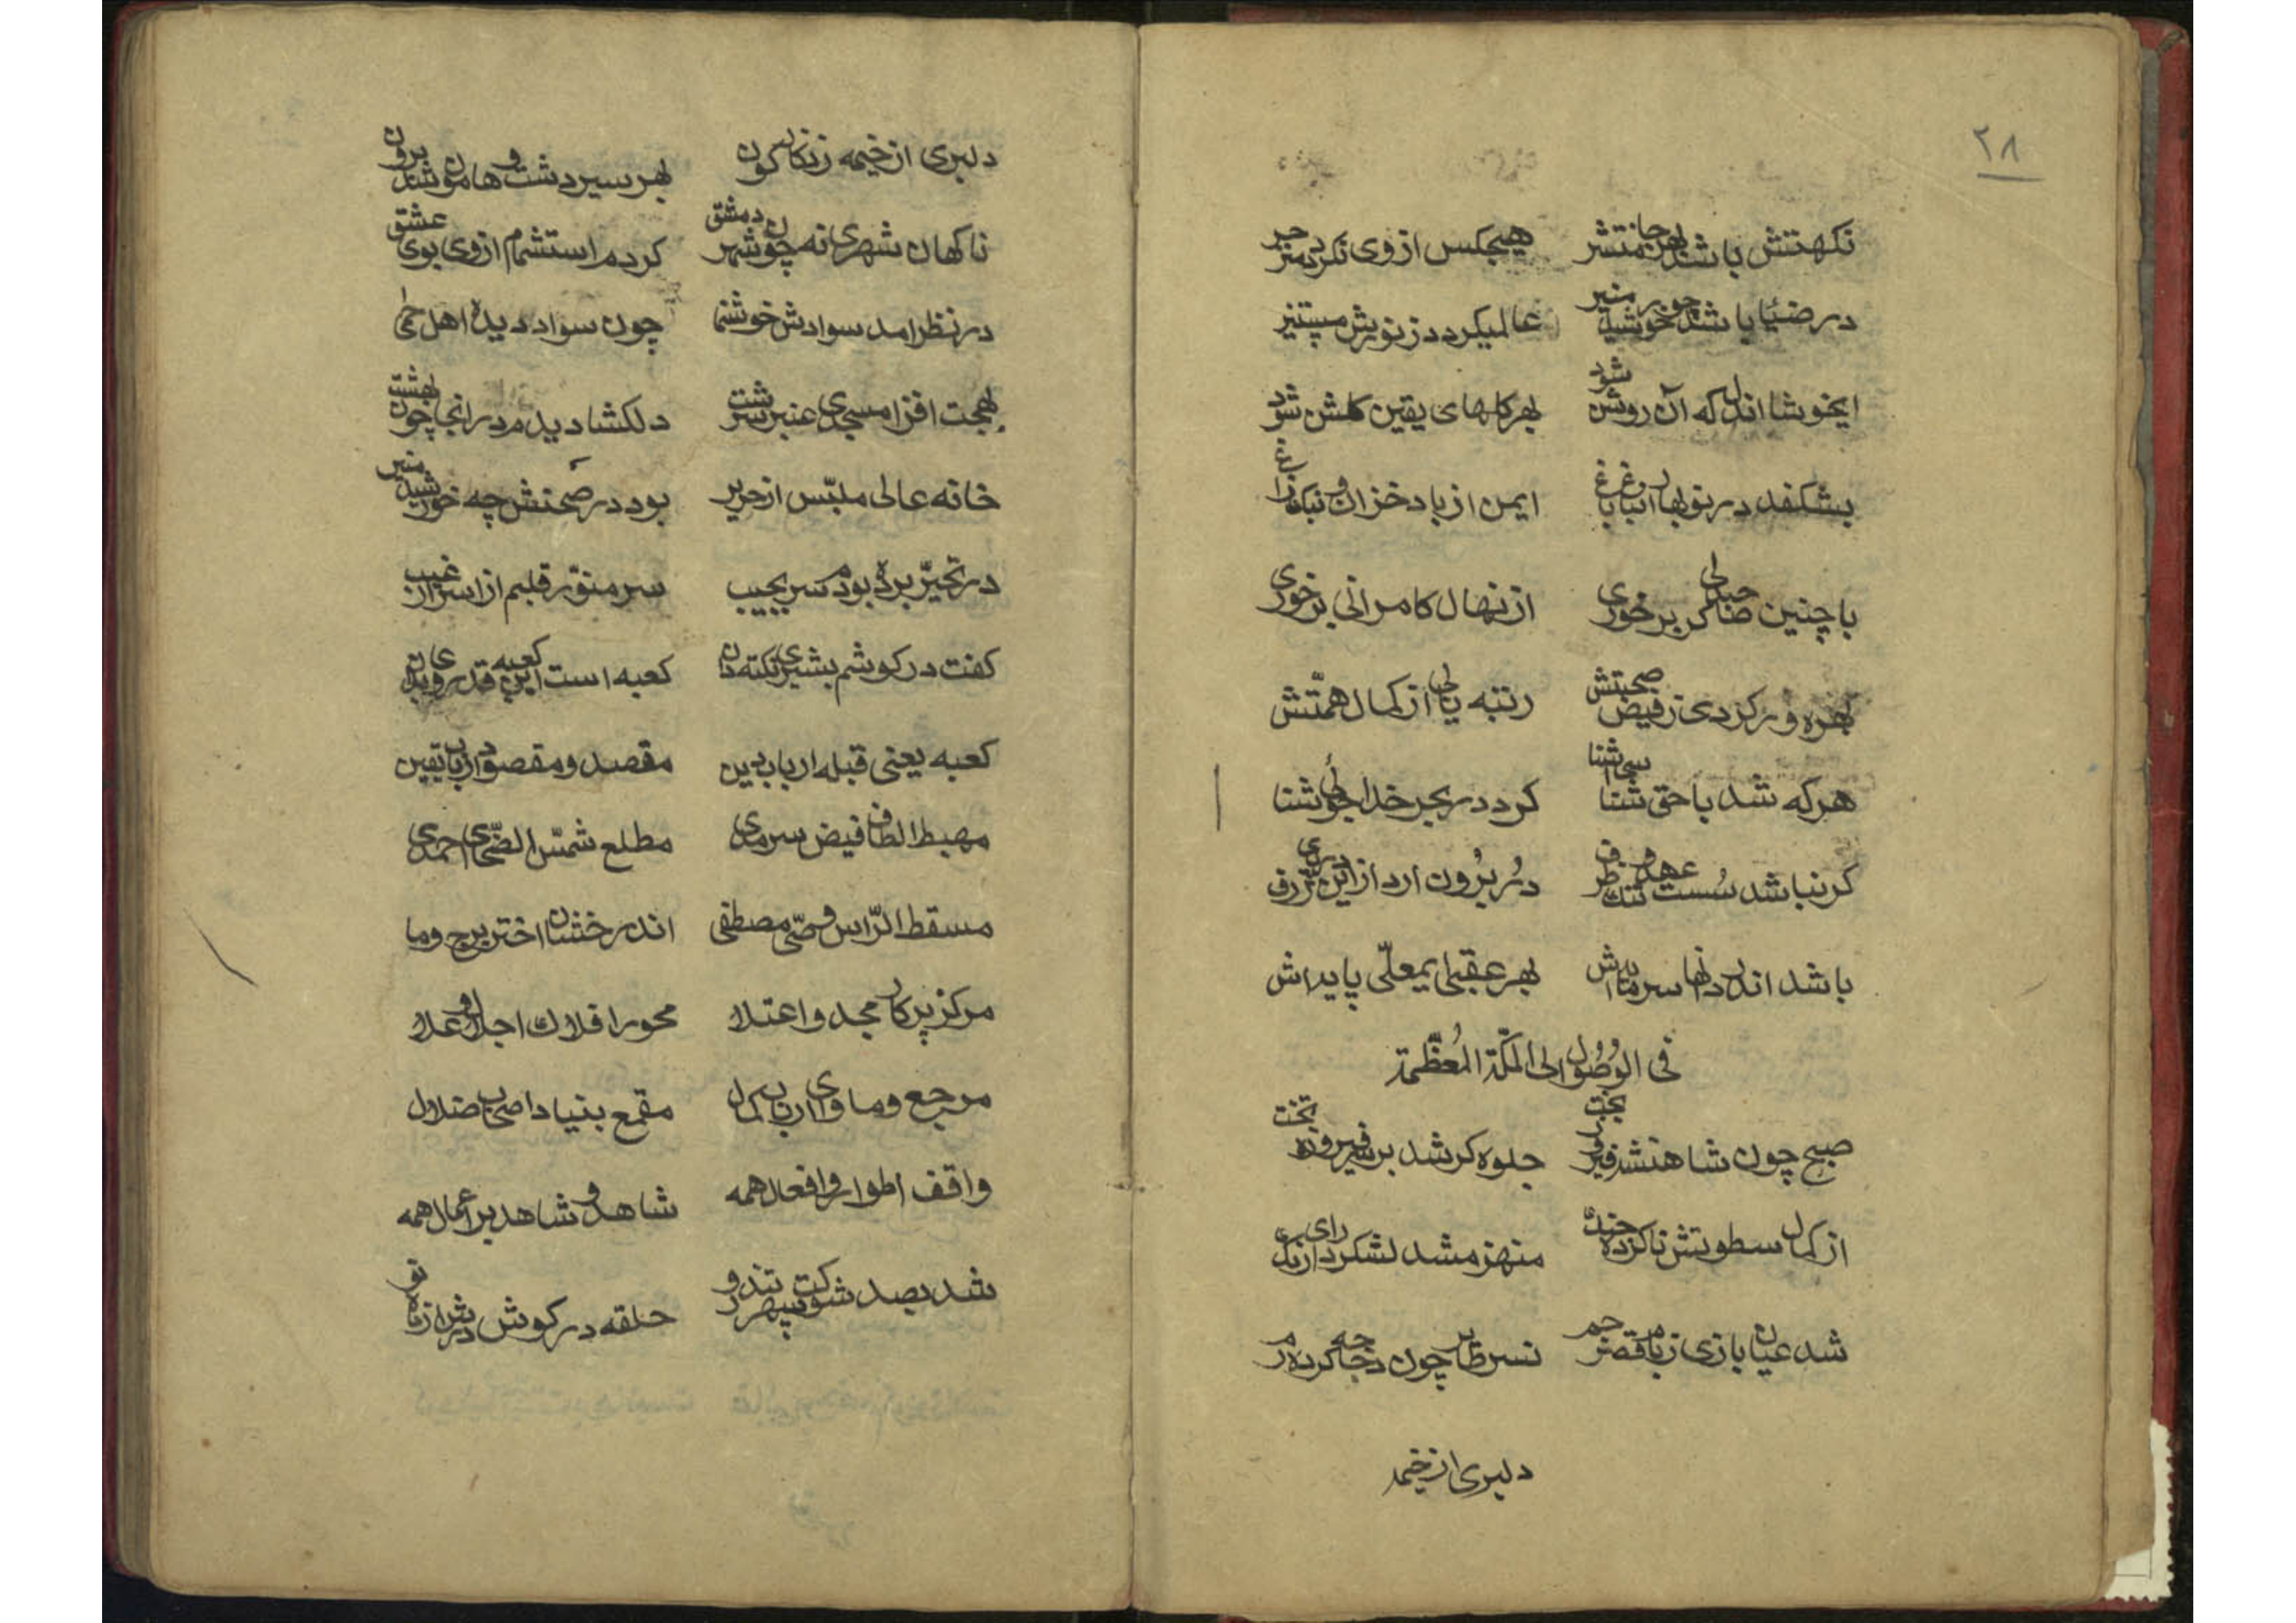 ٢٨
نکهتش باشد بهر جا منتشر هیچکس از وی نکردد منزجر
در ضیا باشد چو خورشید منیر عالمی کردد ز نورش مستنیر
ایخوشا اندل که آن روشن شود بهر کلهای یقین کلشن شود
بشکفد در نوبهار ان باغ باغ ایمن از باد خزان و نیک زاغ
با چنین صاحبدلی کر برخوری از نهال کامرانی برخوری
بهره ور کردی ز فیض صحبتش رتبه یابی از کمال همّتش
هر که شد با حق شناسی اشنا کرد در بحر خدا جوئی شنا
کر نباشد سُست عهد و تنک ظرف دُر بُرون ارد از این دریای ژرف
باشد اندر دنیا سرمایه اش بهر عقبی ایمعلّی پایداش
فی الوُصُول الی المکّة المُعظّمة
صبح چون شاهنشه فیروز بخت جلوه کر شد بر سر فیروزه تخت
از کمال سطوتش ناکرده جنک منهزم شد لشکر دارای زنک
شد عیان بازی ز بام قصر جم نسر طایر چون دجاجه کرده رم
دلبری از خیمه
دلبری از خیمه زنکارکون بهر سیر دشت و هامون شد برون
ناکهان شهری نه چون شهر دمشق کردم استشمام از وی بوی عشق
در نظر امد سوادش خوشنما چون سواد دیده اهل حمی
بهجت افزا مسجدی عنبر سرشت دلکشا دیدم در انجا چون بهشت
خانه عالی ملبّس از حریر بود در صحنش چه خورشید منیر
در تحیّر برده بودم سر بجیب سر منوّر قلبم از اسرار غیب
کفت در کوشم بشیری نکته دان کعبه است این کعبه قدر وی بدان
کعبه یعنی قبله ارباب دین مقصد و مقصود ارباب یقین
مهبط الطاف فیض سرمدی مطلع شمس الضّحای احمدی
مسقط الرّاس وصّی مصطفی اندر خشنان اختر برج وما
مرکز پرکار مجد و اعتلا محور افلاک اجلال و علا
مرجع و ماوای ارباب کمال مقمع بنیاد اصحاب ضلال
واقف اطوار و افعال همه شاهد و شاهد بر اعمال همه
شد بصد شوکت سپهر تند رو حلقه در کوش درش از ماه نو